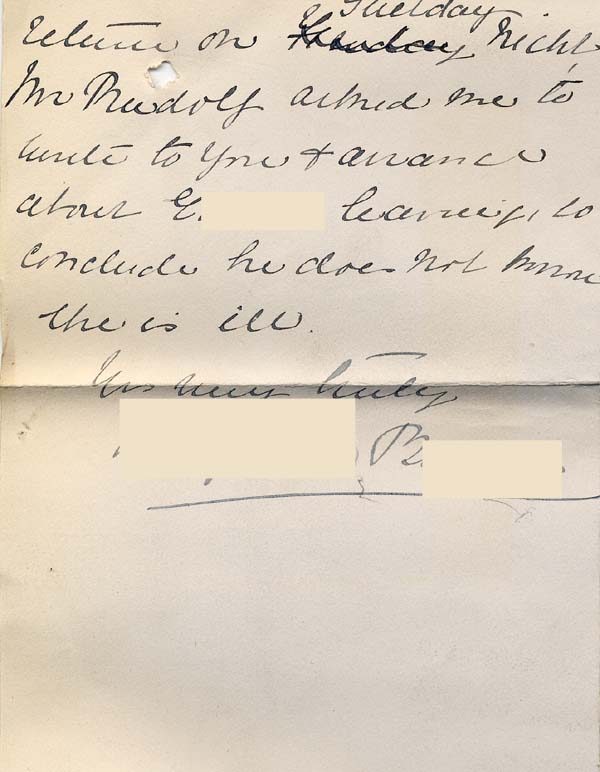 Tuesday
return on Thursday Night
Mr Rudolf asked me to
write to you & arrange
about E. leaving, so
conclude he does not know
she is ill.
Yrs very truly
B